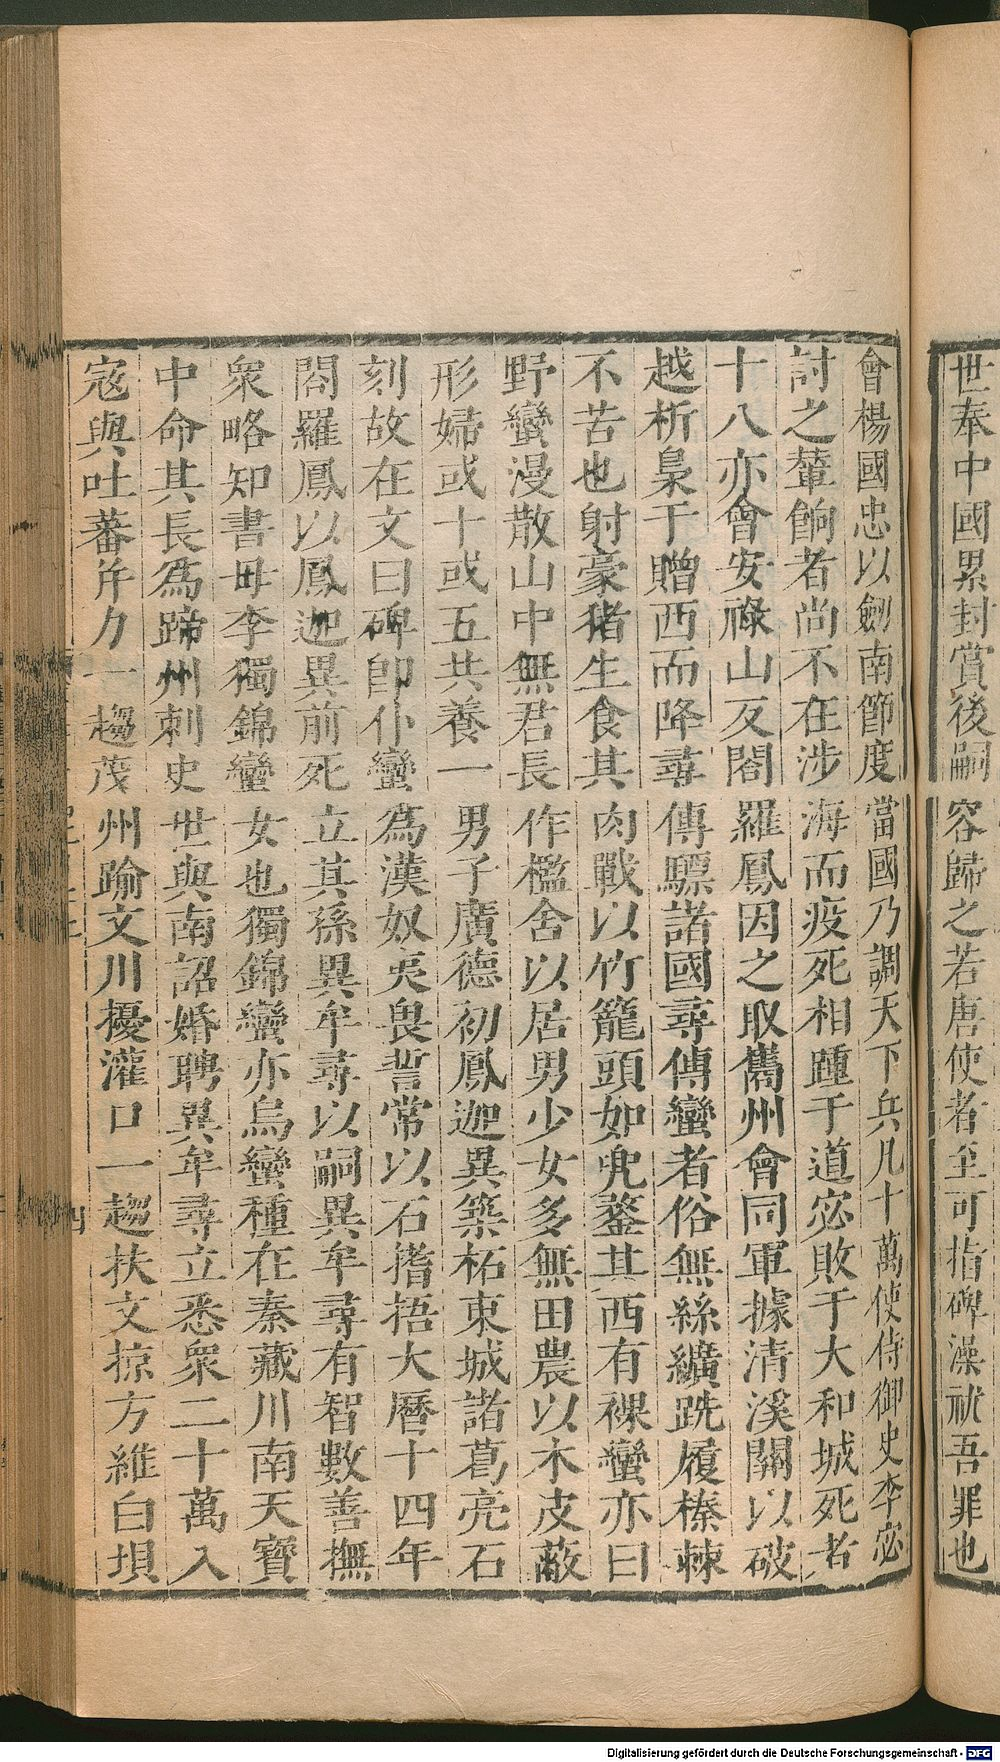 世奉中國累封賞後嗣容歸之若唐使者至可指碑澡祓吾罪也
會楊國忠以劒南節度當國乃調天下兵凡十萬使侍御史李宓
討之輦餉者尚不在涉海而疫死相踵于道宓敗于大和城死者
十八亦會安祿山反閤羅鳳因之取巂州會同軍據清溪關以破
越析梟于贈西而降尋傳驃諸國尋傳蠻者俗無絲纊跣履榛棘
不苦也射豪豬生食其肉戰以竹籠頭如兜鍪其西有裸蠻亦曰
野蠻漫散山中無君長作檻舍以居男少女多無田農以木皮蔽
形婦或十或五共養一男子廣德初鳳迦異築柘東城諸葛亮石
刻故在文曰碑卽仆蠻為漢奴夷畏誓常以石搘捂大曆十四年
閤羅鳳以鳳迦異前死立其孫異牟尋以嗣異牟尋有智數善撫
衆略知書母李獨錦蠻女也獨錦蠻亦烏蠻種在秦藏川南天寶
中命其長爲蹄州刺史世與南詔婚聘異牟尋立悉衆二十萬入
寇與吐蕃并力一趨茂州踰文川擾灌口一趨扶文掠方維白垻
四
Digitalisierung gefördert durch die Deutsche Forschungsgemeinschaft - DFG